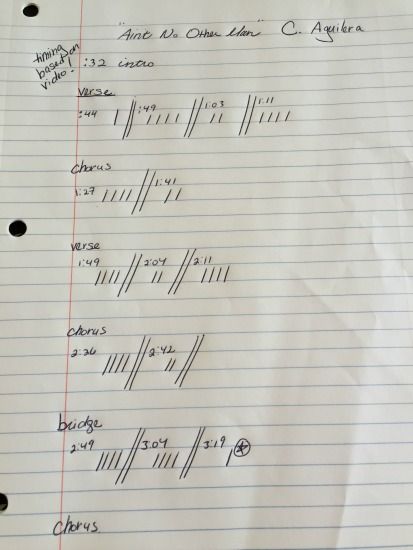 "Aint No Other Man" C. Aguilera
timing based on video!
:32 intro
verse
:44 | // :49 |||| // 1:03 || // 1:11 ||||
chorus
1:27 |||| // 1:41 ||
verse
1:49 |||| // 2:04 || // 2:11 ||||
chorus
2:26 |||| // 2:42 || //
bridge
2:49 |||| // 3:04 |||| // 3:19 |
chorus